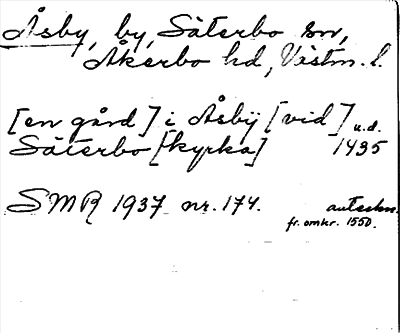 Åsby, by, Säterbo sn,
Åkerbo hd, Västm. l.
[en gård] i Åsbÿ [vid] u.d.
Säterbo [kyrka] 1435
SMR 1937 nr. 174. anteckn.
fr. omkr. 1550.